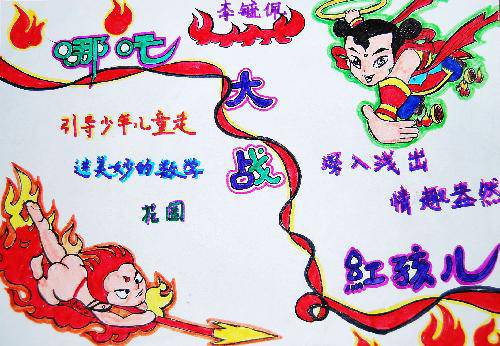 李毓佩
哪吒
大战
红孩儿
引导少年儿童走
进美妙的数学
花园
深入浅出
情趣盎然